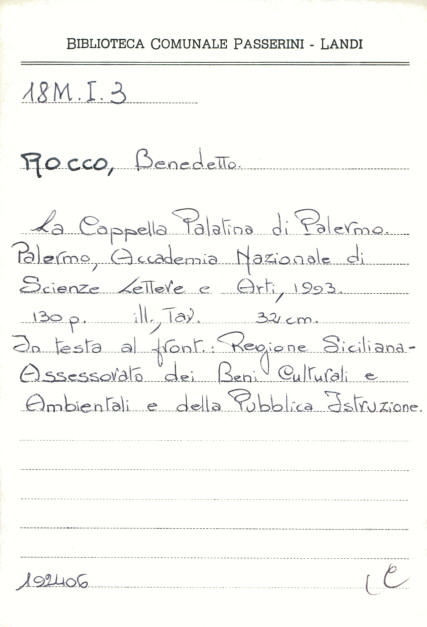 BIBLIOTECA COMUNALE PASSERINI - LANDI
18M.I.3
ROCCO, Benedetto.
La Cappella Palatina di Palermo.
Palermo, Accademia Nazionale di
Scienze Lettere e Arti, 1993.
130 p. ill., Tav. 32 cm.
In testa al front.: Regione Siciliana-
Assessorato dei Beni Culturali e
Ambientali e della Pubblica Istruzione.
192406